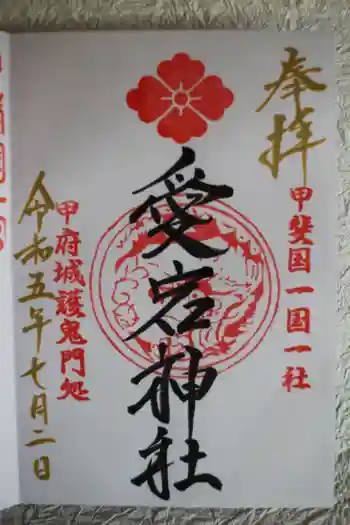 奉拝
甲斐国一国一社
愛宕神社
甲府城護鬼門処
令和五年七月二日